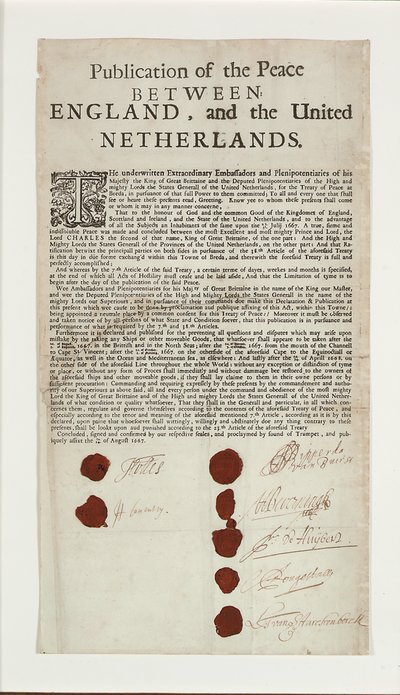 Publication of the Peace
BETWEEN
ENGLAND, and the United
NETHERLANDS.
THe underwritten Extraordinary Embassadors and Plenipotentiaries of his
Majesty the King of Great Brittaine and the Deputed Plenipotentiaries of the High and
mighty Lords the States Generall of the United Netherlands, for the Treaty of Peace at
Breda, in pursuance of that full Power to them committed; To all and every one that shall
see or heare these presents read, Greeting. Know yee to whom these presents shall come
or whom it may in any manner concerne,
That to the honour of God and the common Good of the Kingdomes of England,
Scotland and Ireland, and the State of the United Netherlands, and to the advantage
of all the Subjects an Inhabitants of the same upon the July 1667. A true, firme and
indissoluble Peace was made and concluded between the most Excellent and most mighty Prince and Lord, the
Lord CHARLES the second of that name, King of Great Brittaine, of the one part: And the High and
Mighty Lords the States Generall of the Provinces of the United Netherlands, on the other part: And that Ra-
tification betwixt the principall parties on both sides in pursuance of the Article of the aforesaid Treaty
is this day in due forme exchang'd within this Towne of Breda, and therewith the foresaid Treaty is full and
perfectly accomplished;
And whereas by the 7.th Article of the said Treaty, a certain terme of dayes, weekes and months is specified,
at the end of which all Acts of Hostility must cease and be laid aside, And that the Limitation of tyme is to
begin after the day of the publication of the said Peace.
Wee Ambassadors and Plenipotentiaries for his Maj.ty of Great Brittaine in the name of the King our Master,
and wee the Deputed Plenipotentiaries of the High and Mighty Lords the States Generall in the name of the
mighty Lords our Superiours, and in pursuance of their commands doe make this Declaration & Publication at
this present which wee cause to be done by proclamation and publique affixing of this Act, within this Towne,
being appointed a neutrale place by a common consent for this Treaty of Peace: Moreover it must be observed
and taken notice of by all persons of what State and Condition soever, that this publication is in pursuance and
performance of what is required by the 7.th and Articles.
Furthermore it is declared and published for the preventing all questions and disputes which may arise upon
mistake by the taking any Ships or other moveable Goods, that whatsoever shall appeare to be taken after the
1667. in the Brittish and in the North Seas; after the 1667. from the mouth of the Channell
to Cape St. Vincent; after the 1667. on the otherside of the aforesaid Cape to the Equinoctiall or
Equator, as well in the Ocean and Mediterranean sea, as elsewhere: And lastly after the of Aprill 1668. on
the other side of the aforesaid Line throughout the whole World: without any exception or distinction of tyme
or place, or without any form of Proces shall immediatly and without dammage bee restored to the owners of
the aforesaid ships and other moveable goods, if they shall lay claime to them in their owne persons or by
sufficient procuration: Commanding and requiring expressely by these presents by the commandement and autho-
rity of our Superiours as above said, all and every person under the command and obedience of the most mighty
Lord the King of Great Brittaine and of the High and mighty Lords the States Generall of the United Nether-
lands of what condition or quality whatsoever, That they shall in the Generall and particular, in all which con-
cernes them, regulate and governe themselves according to the contents of the aforesaid Treaty of Peace, and
especially according to the tenor and meaning of the aforesaid mentioned 7.th Article, according as it is by this
declared, upon paine that whosoever shall wittingly, willingly and obstinately doe any thing contrary to these
presents, shall be lookt upon and punished according to the Article of the aforesaid Treaty
Concluded, signed and confirmed by our respective seales, and proclaymed by sound of Trumpet, and pub-
liquely affixt the of August 1667.
Holles
H Coventry